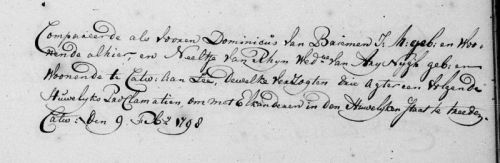 Compareerde als vooren Dominicus van Baremen J: M: geb: en Woo-
nende alhier, en Neeltje van Rhyn Wed:e van Ary Nuys geb: en
Woonende te Catw: Aan Zee, dewelke verzogten drie agter een volgende
Huwelyks Proclamatien, om met Elkanderen in den Huwelyken staat te treeden
Catw: den 9 Feb: 1798